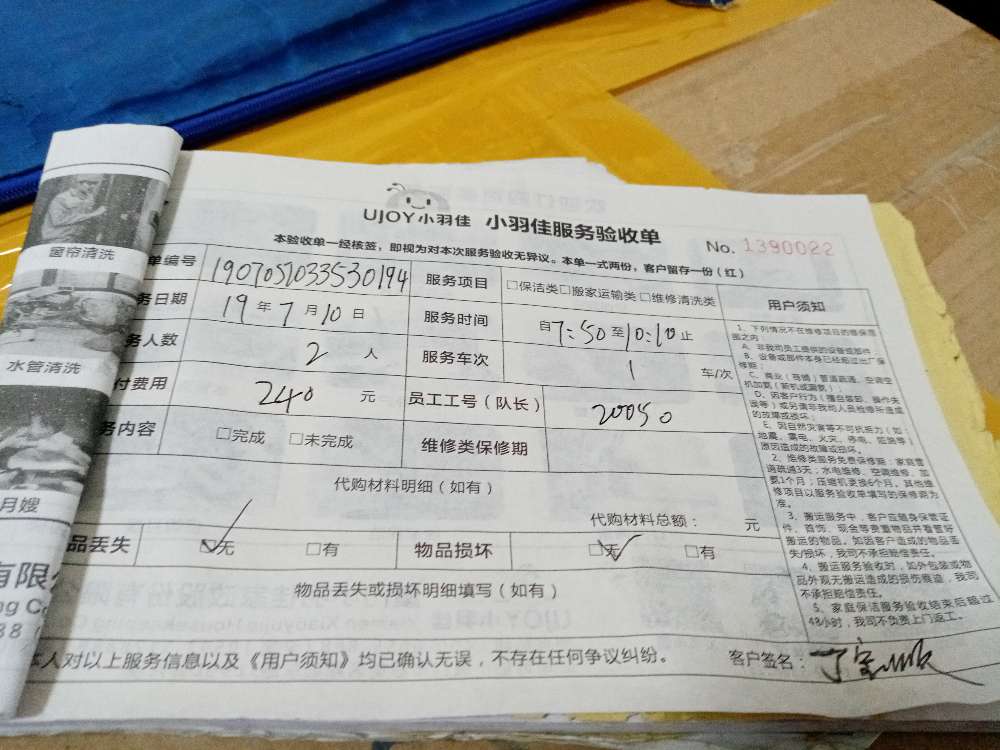 UJOY小羽佳 小羽佳服务验收单
No. 1390022
本验收单一经核签，即视为对本次服务验收无异议。本单一式两份，客户留存一份（红）
单编号 190705103353​0194 服务项目 □保洁类□搬家运输类□维修清洗类 用户须知
务日期 19年7月10日 服务时间 自7:50至10:10止
务人数 2人 服务车次 1 车/次
付费用 240元 员工工号（队长） 20050
务内容 □完成 □未完成 维修类保修期
代购材料明细（如有）
代购材料总额： 元
品丢失 ☑无 □有 物品损坏 ☑无 □有
物品丢失或损坏明细填写（如有）
本人对以上服务信息以及《用户须知》均已确认无误，不存在任何争议纠纷。 客户签名：
1、下列情况不在维修项目的维保范
围之内：
A、非我司员工提供的设备或部件
B、设备或部件本身已经超过出厂保
修期；
E、因自然灾害等不可抗拒力（如：
地震、雷电、火灾、停电、阻路等）
原因造成的故障或损坏。
2、维修类服务免费保修期：家庭管
道疏通3天；水电维修、空调维修、加
氨1个月；压缩机更换6个月。其他维
修项目以服务验收单填写的保修期为
准。
3、搬运服务中，客户应随身保管证
件、首饰、现金等贵重物品并看管好
搬运的物品。如因客户造成的物品丢
失/损坏，我司不承担赔偿责任。
4、搬运服务验收时，如外包装或物
品外观无搬运造成的损伤痕迹，我司
不承担赔偿责任。
5、家庭保洁服务验收结束后超过
48小时，我司不负责上门返工。
窗帘清洗
水管清洗
月嫂
有限